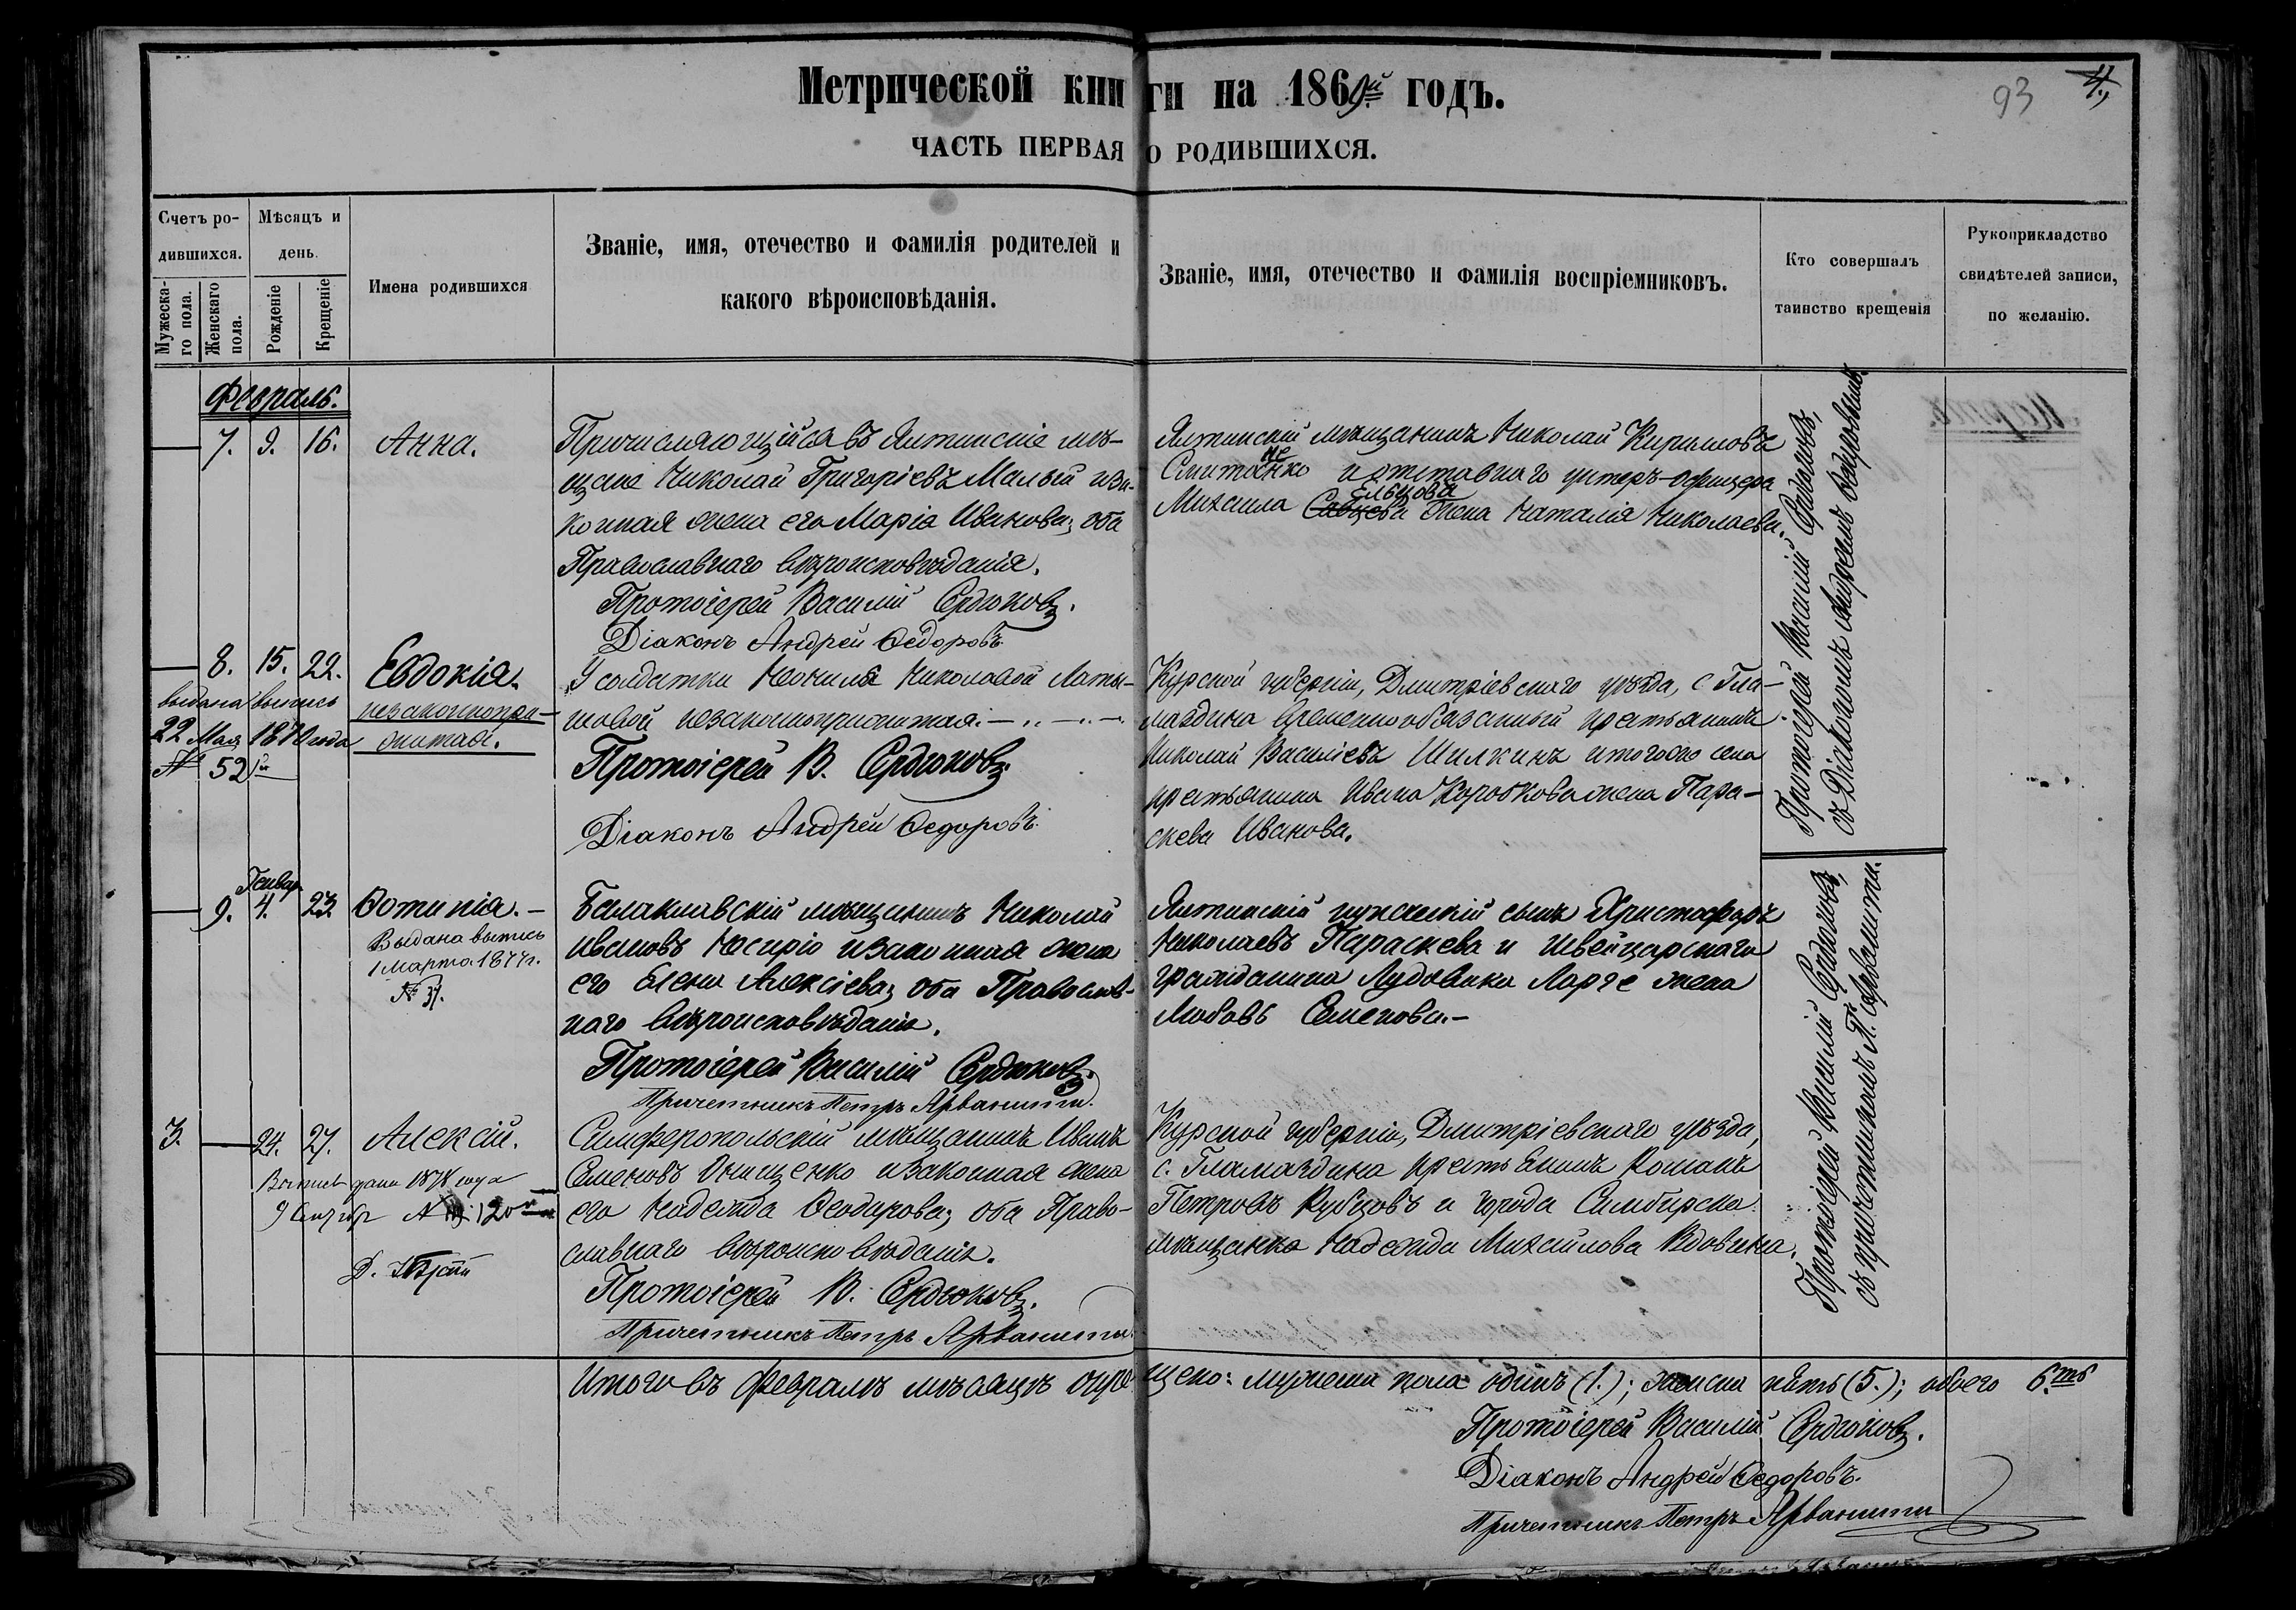 Метрической книги на 1869й годъ.
93
4.
ЧАСТЬ ПЕРВАЯ О РОДИВШИХСЯ.
Счетъ родившихся.
Мужескаго пола.
Женскаго пола.
Мѣсяцъ и день.
Рожденіе
Крещеніе
Имена родившихся
Званіе, имя, отечество и фамилія родителей и
какого вѣроисповѣданія.
Званіе, имя, отечество и фамилія воспріемниковъ.
Кто совершалъ
таинство крещенія
Рукоприкладство
свидѣтелей записи,
по желанію.
Февраль.
7. 9. 16. Анна.
Причисляющійся въ Ялтинскіе мѣ-
щане Николай Григоріевъ Малый и за-
конная жена его Марія Иванова; оба
Православнаго вѣроисповѣданія.
Протоіерей Василій Сердюковъ.
Діаконъ Андрей Ѳедоровъ.
Ялтинскій мѣщанинъ Николай Кириловъ
и отставнаго унтеръ-офицера
Михаила Ельцова жена Наталія Николаева.
Протоіерей Василій Сердюковъ,
съ Діакономъ Андреемъ Ѳедоровымъ.
8. 15. 22. Евдокія.
незаконнопри-
житая.
выдана выпись
22 Мая 1870 года
№ 52й
У солдатки Неонилы Николаевой Латы-
шовой незаконноприжитая.
Протоіерей В. Сердюковъ.
Діаконъ Андрей Ѳедоровъ.
Курской губерніи, Дмитріевскаго уѣзда, с. Гла-
маздина временнообязанный крестьянинъ
Николай Василіевъ Шилкинъ и того же села
крестьянина Ивана Короткова жена Пара-
скева Иванова.
Генвар.
9. 4. 23. Ѳотинія.
Выдана выпись
1 Марта 1877г.
№ 37.
Балаклавскій мѣщанинъ Николай
Ивановъ и законная жена
его Елена Алексіева; оба Православ-
наго вѣроисповѣданія.
Протоіерей Василій Сердюковъ.
Причетникъ Петръ Арванити.
Ялтинскій купеческій сынъ Христофоръ
Николаевъ Параскева и Швейцарскаго
гражданина Лудовика Ларге жена
Любовь Семенова.
Протоіерей Василій Сердюковъ,
съ причетникомъ П. Арванити.
3. 24. 27. Алексій.
Выпись дана 1878 года
9 № 120
Симферопольскій мѣщанинъ Иванъ
Семеновъ Онищенко и законная жена
его Надежда Ѳеодорова; оба Право-
славнаго вѣроисповѣданія.
Протоіерей В. Сердюковъ.
Причетникъ Петръ Арванити.
Курской губерніи, Дмитріевскаго уѣзда,
с. Гламаздина крестьянинъ Романъ
Петровъ Рубцовъ и города Симбирска
мѣщанка Надежда Михайлова Вдовина.
Итого въ Февралѣ мѣсяцѣ окрещено: мужеска пола одинъ (1.); женска пять (5.); обоего 6.ть
Протоіерей Василій Сердюковъ.
Діаконъ Андрей Ѳедоровъ.
Причетникъ Петръ Арванити